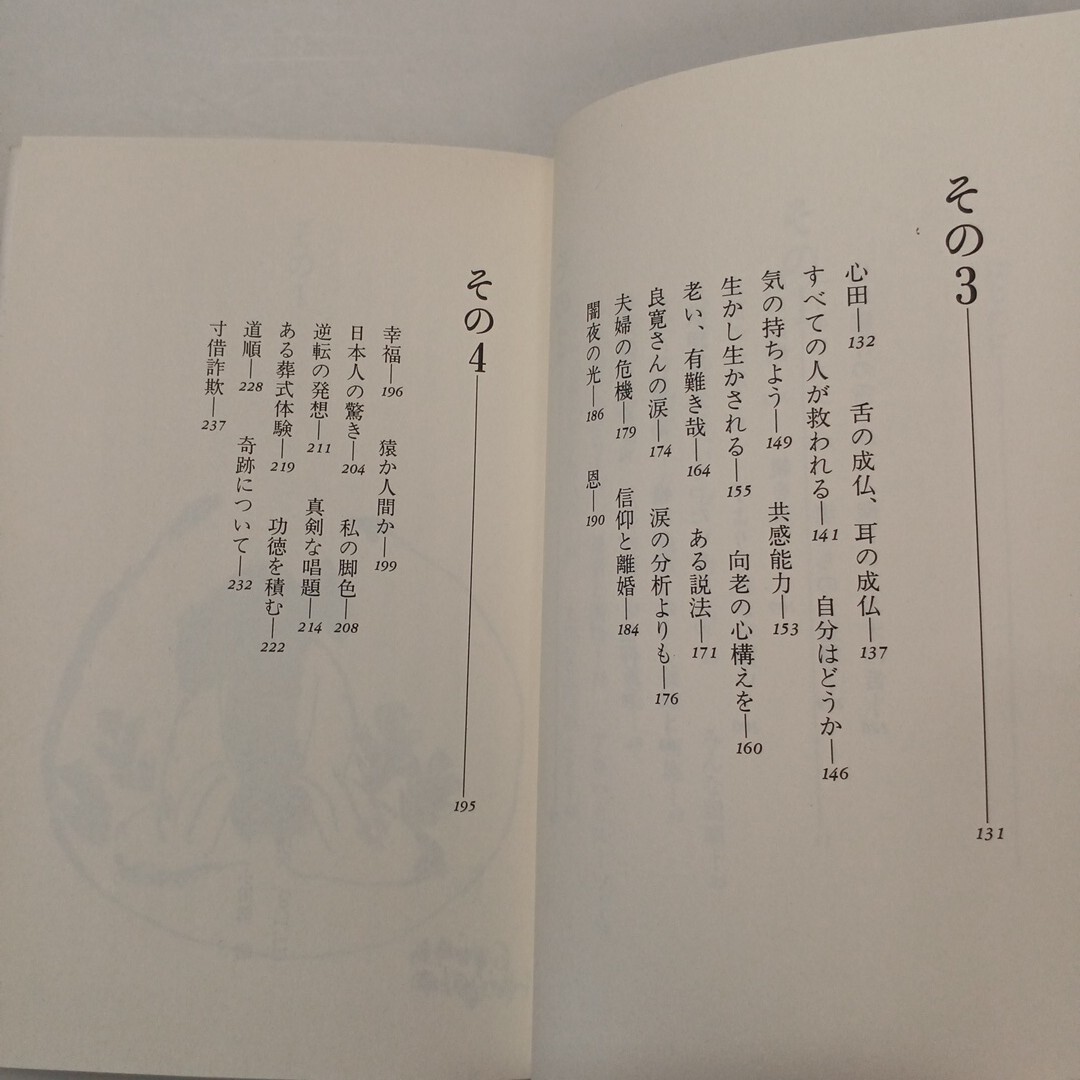 その3―131
心田―132 舌の成仏、耳の成仏―137
すべての人が救われる―141 自分はどうか―146
気の持ちよう―149 共感能力―153
生かし生かされる―155 向老の心構えを―160
老い、有難き哉―164 ある説法―171
良寛さんの涙―174 涙の分析よりも―176
夫婦の危機―179 信仰と離婚―184
闇夜の光―186 恩―190
その4―195
幸福―196 猿か人間か―199
日本人の驚き―204 私の脚色―208
逆転の発想―211 真剣な唱題―214
ある葬式体験―219 功徳を積む―222
道順―228 奇跡について―232
寸借詐欺―237